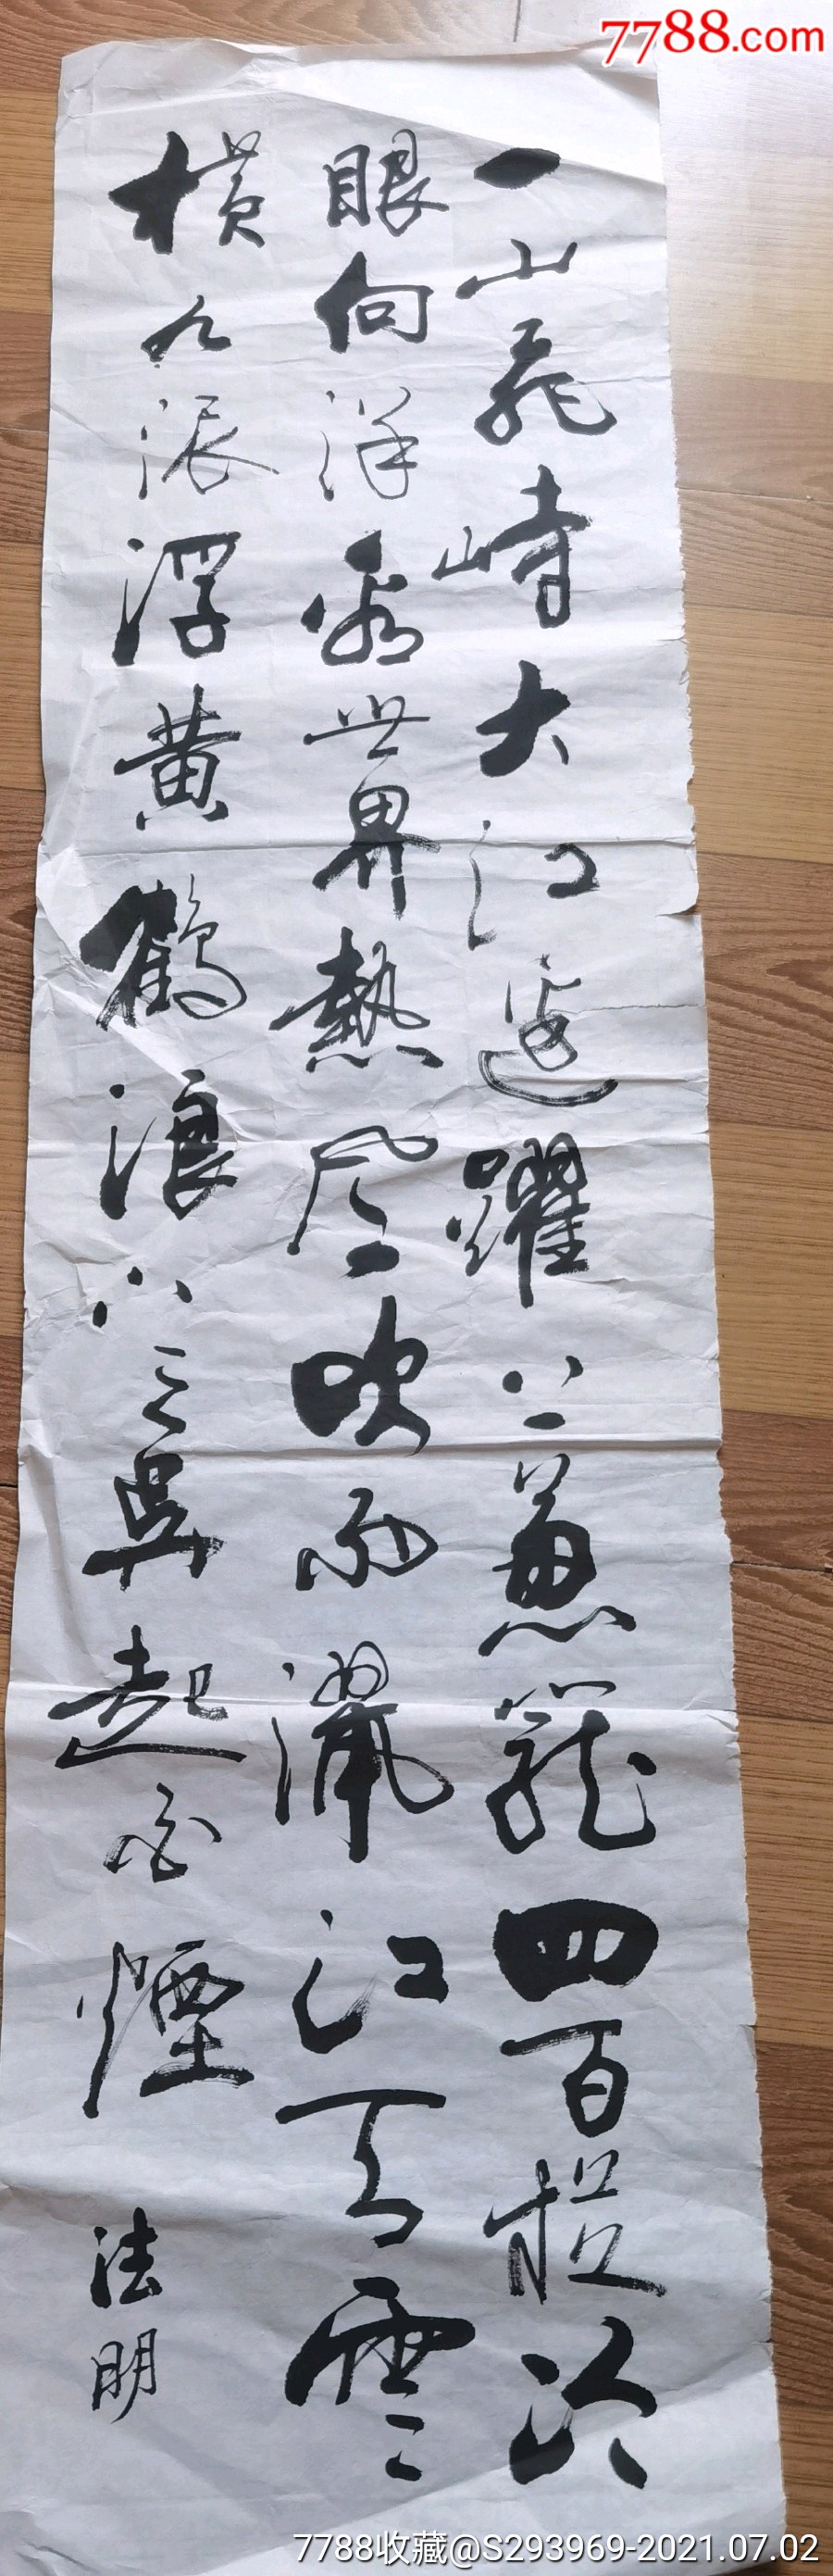 7788.com
一山飛峙大江邊躍上蔥蘢四百旋冷
眼向洋看世界熱風吹雨灑江天雲
橫九派浮黃鶴浪下三吳起白煙
法明
7788收藏@S293969-2021.07.02